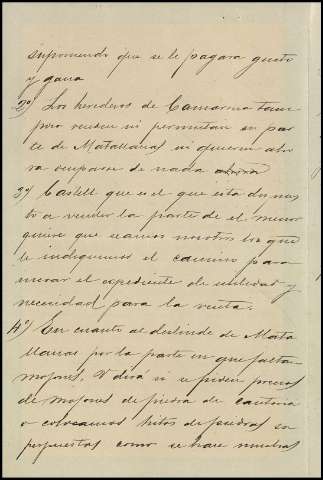 suponiendo que se le pagara gusto
y gana
2º) Los herederos de Camarma tam-
poco venden ni permutan su par
te de Matallanas ni quieren aho
ra ocuparse de nada ahora
3º) Castell que es el que esta dispues
to a vender la parte de el menor
quiere que seamos nosotros los que
le indiquemos el camino para
incoar el expediente de utilidad y
necesidad para la venta.
4º) En cuanto al deslinde de Mata
llanas por la parte en que faltan
mojones, V dirá si se piden precios
de mojones de piedra de cantería
o colocamos hitos de piedras su
perpuestas como se hace nuestras